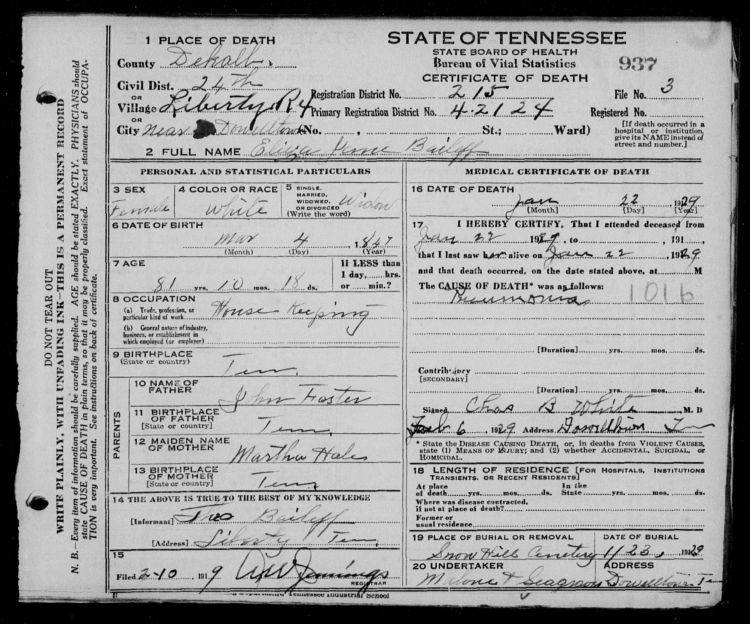 1 PLACE OF DEATH
County Dekalb.
Civil Dist. 24th
OR
Village Liberty R4
OR
City near Dowelltown No. , St.; Ward)
2 FULL NAME Eliza Bailiff
STATE OF TENNESSEE
STATE BOARD OF HEALTH
Bureau of Vital Statistics
CERTIFICATE OF DEATH
937
Registration District No. 215 File No. 3
Primary Registration District No. 42124 Registered No.
[If death occurred in a
hospital or institution,
give its NAME instead of
street and number.]
DO NOT TEAR OUT
WRITE PLAINLY, WITH UNFADING INK—THIS IS A PERMANENT RECORD
N. B.—Every item of information should be carefully supplied. AGE should be stated EXACTLY. PHYSICIANS should
state CAUSE OF DEATH in plain terms, so that it may be properly classified. Exact statement of OCCUPA-
TION is very important. See instructions on back of certificate.
PERSONAL AND STATISTICAL PARTICULARS
3 SEX
Female
4 COLOR OR RACE
White
5 SINGLE,
MARRIED,
WIDOWED,
OR DIVORCED
(Write the word)
Widow
6 DATE OF BIRTH
Mar 4, 1847
(Month) (Day) (Year)
7 AGE
81 yrs. 10 mos. 18 ds.
If LESS than
1 day, hrs.
or min.?
8 OCCUPATION
(a) Trade, profession, or
particular kind of work
House Keeping
(b) General nature of industry,
business, or establishment in
which employed (or employer)
9 BIRTHPLACE
(State or country)
Tenn.
PARENTS
10 NAME OF
FATHER
John Foster
11 BIRTHPLACE
OF FATHER
(State or country)
Tenn.
12 MAIDEN NAME
OF MOTHER
Martha Hales
13 BIRTHPLACE
OF MOTHER
[State or country]
Tenn
14 THE ABOVE IS TRUE TO THE BEST OF MY KNOWLEDGE
[Informant] Bailiff
[Address] Liberty Tenn,
15
Filed 2-10 1919 Jennings
REGISTRAR
Tennessee Industrial School
MEDICAL CERTIFICATE OF DEATH
16 DATE OF DEATH
Jan 22 1929
(Month) (Day) (Year)
17 I HEREBY CERTIFY, That I attended deceased from
Jan 22 1929, to , 191
that I last saw her alive on Jan 22 1929
and that death occurred, on the date stated above, at M
The CAUSE OF DEATH* was as follows:
Pneumonia
101b
[Duration] yrs. mos. ds.
Contributory
[SECONDARY]
[Duration] yrs. mos. ds.
Signed Chas B White M. D
Feb 6 1929 Address Dowelltown Tenn
* State the DISEASE CAUSING DEATH, or, in deaths from VIOLENT CAUSES,
state (1) MEANS OF INJURY; and (2) whether ACCIDENTAL, SUICIDAL, or
HOMICIDAL.
18 LENGTH OF RESIDENCE [FOR HOSPITALS, INSTITUTIONS
TRANSIENTS, OR RECENT RESIDENTS]
At place In the
of death yrs. mos. ds. State yrs. mos. ds.
Where was disease contracted,
if not at place of death?
Former or
usual residence
19 PLACE OF BURIAL OR REMOVAL
Snow Hill Cemetery
DATE OF BURIAL
1/23, 1929
20 UNDERTAKER
Malone & Seagraves
ADDRESS
Dowelltown Tenn